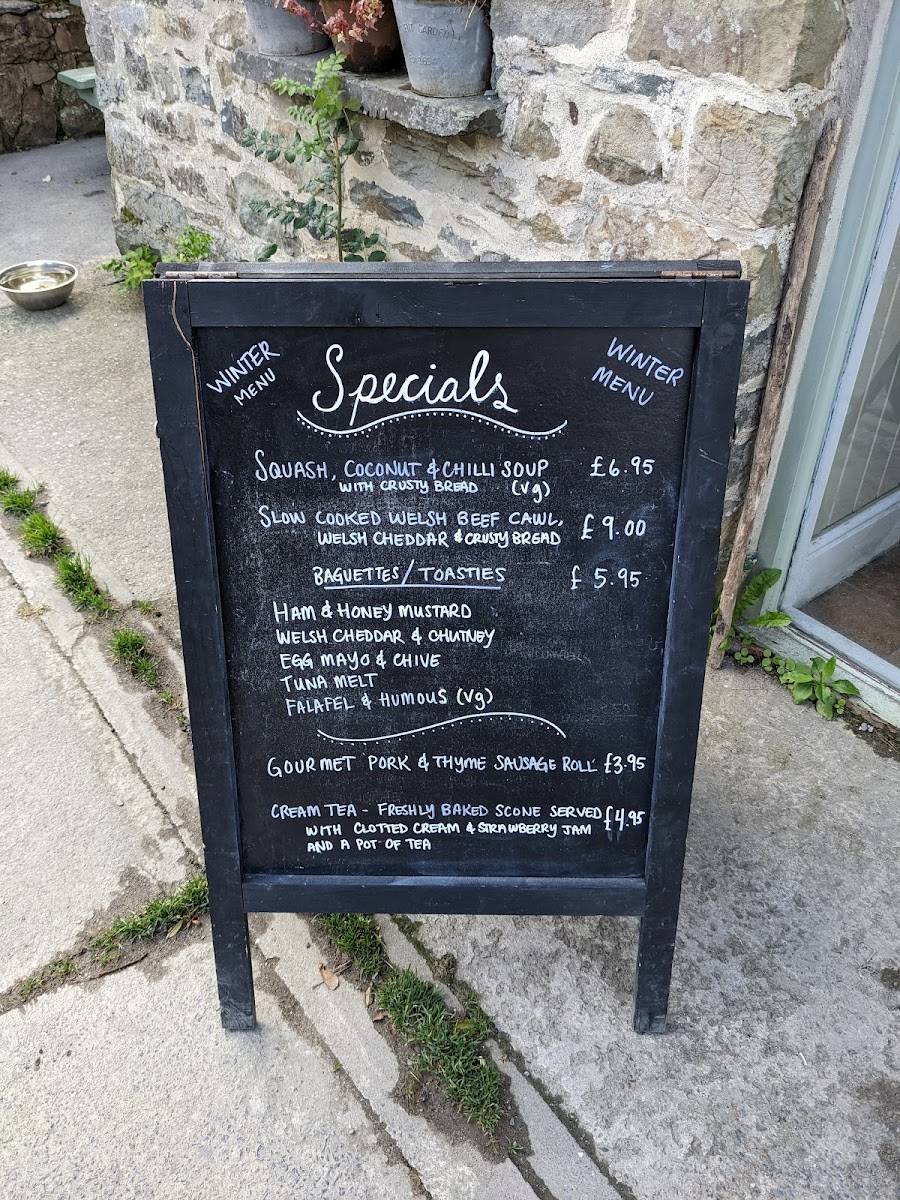 WINTER
MENU
Specials
WINTER
MENU
SQUASH, COCONUT & CHILLI SOUP £6.95
WITH CRUSTY BREAD (vg)
SLOW COOKED WELSH BEEF CAWL, £9.00
WELSH CHEDDAR & CRUSTY BREAD
BAGUETTES/TOASTIES £5.95
HAM & HONEY MUSTARD
WELSH CHEDDAR & CHUTNEY
EGG MAYO & CHIVE
TUNA MELT
FALAFEL & HUMOUS (vg)
GOURMET PORK & THYME SAUSAGE ROLL £3.95
CREAM TEA - FRESHLY BAKED SCONE SERVED £4.95
WITH CLOTTED CREAM & STRAWBERRY JAM
AND A POT OF TEA